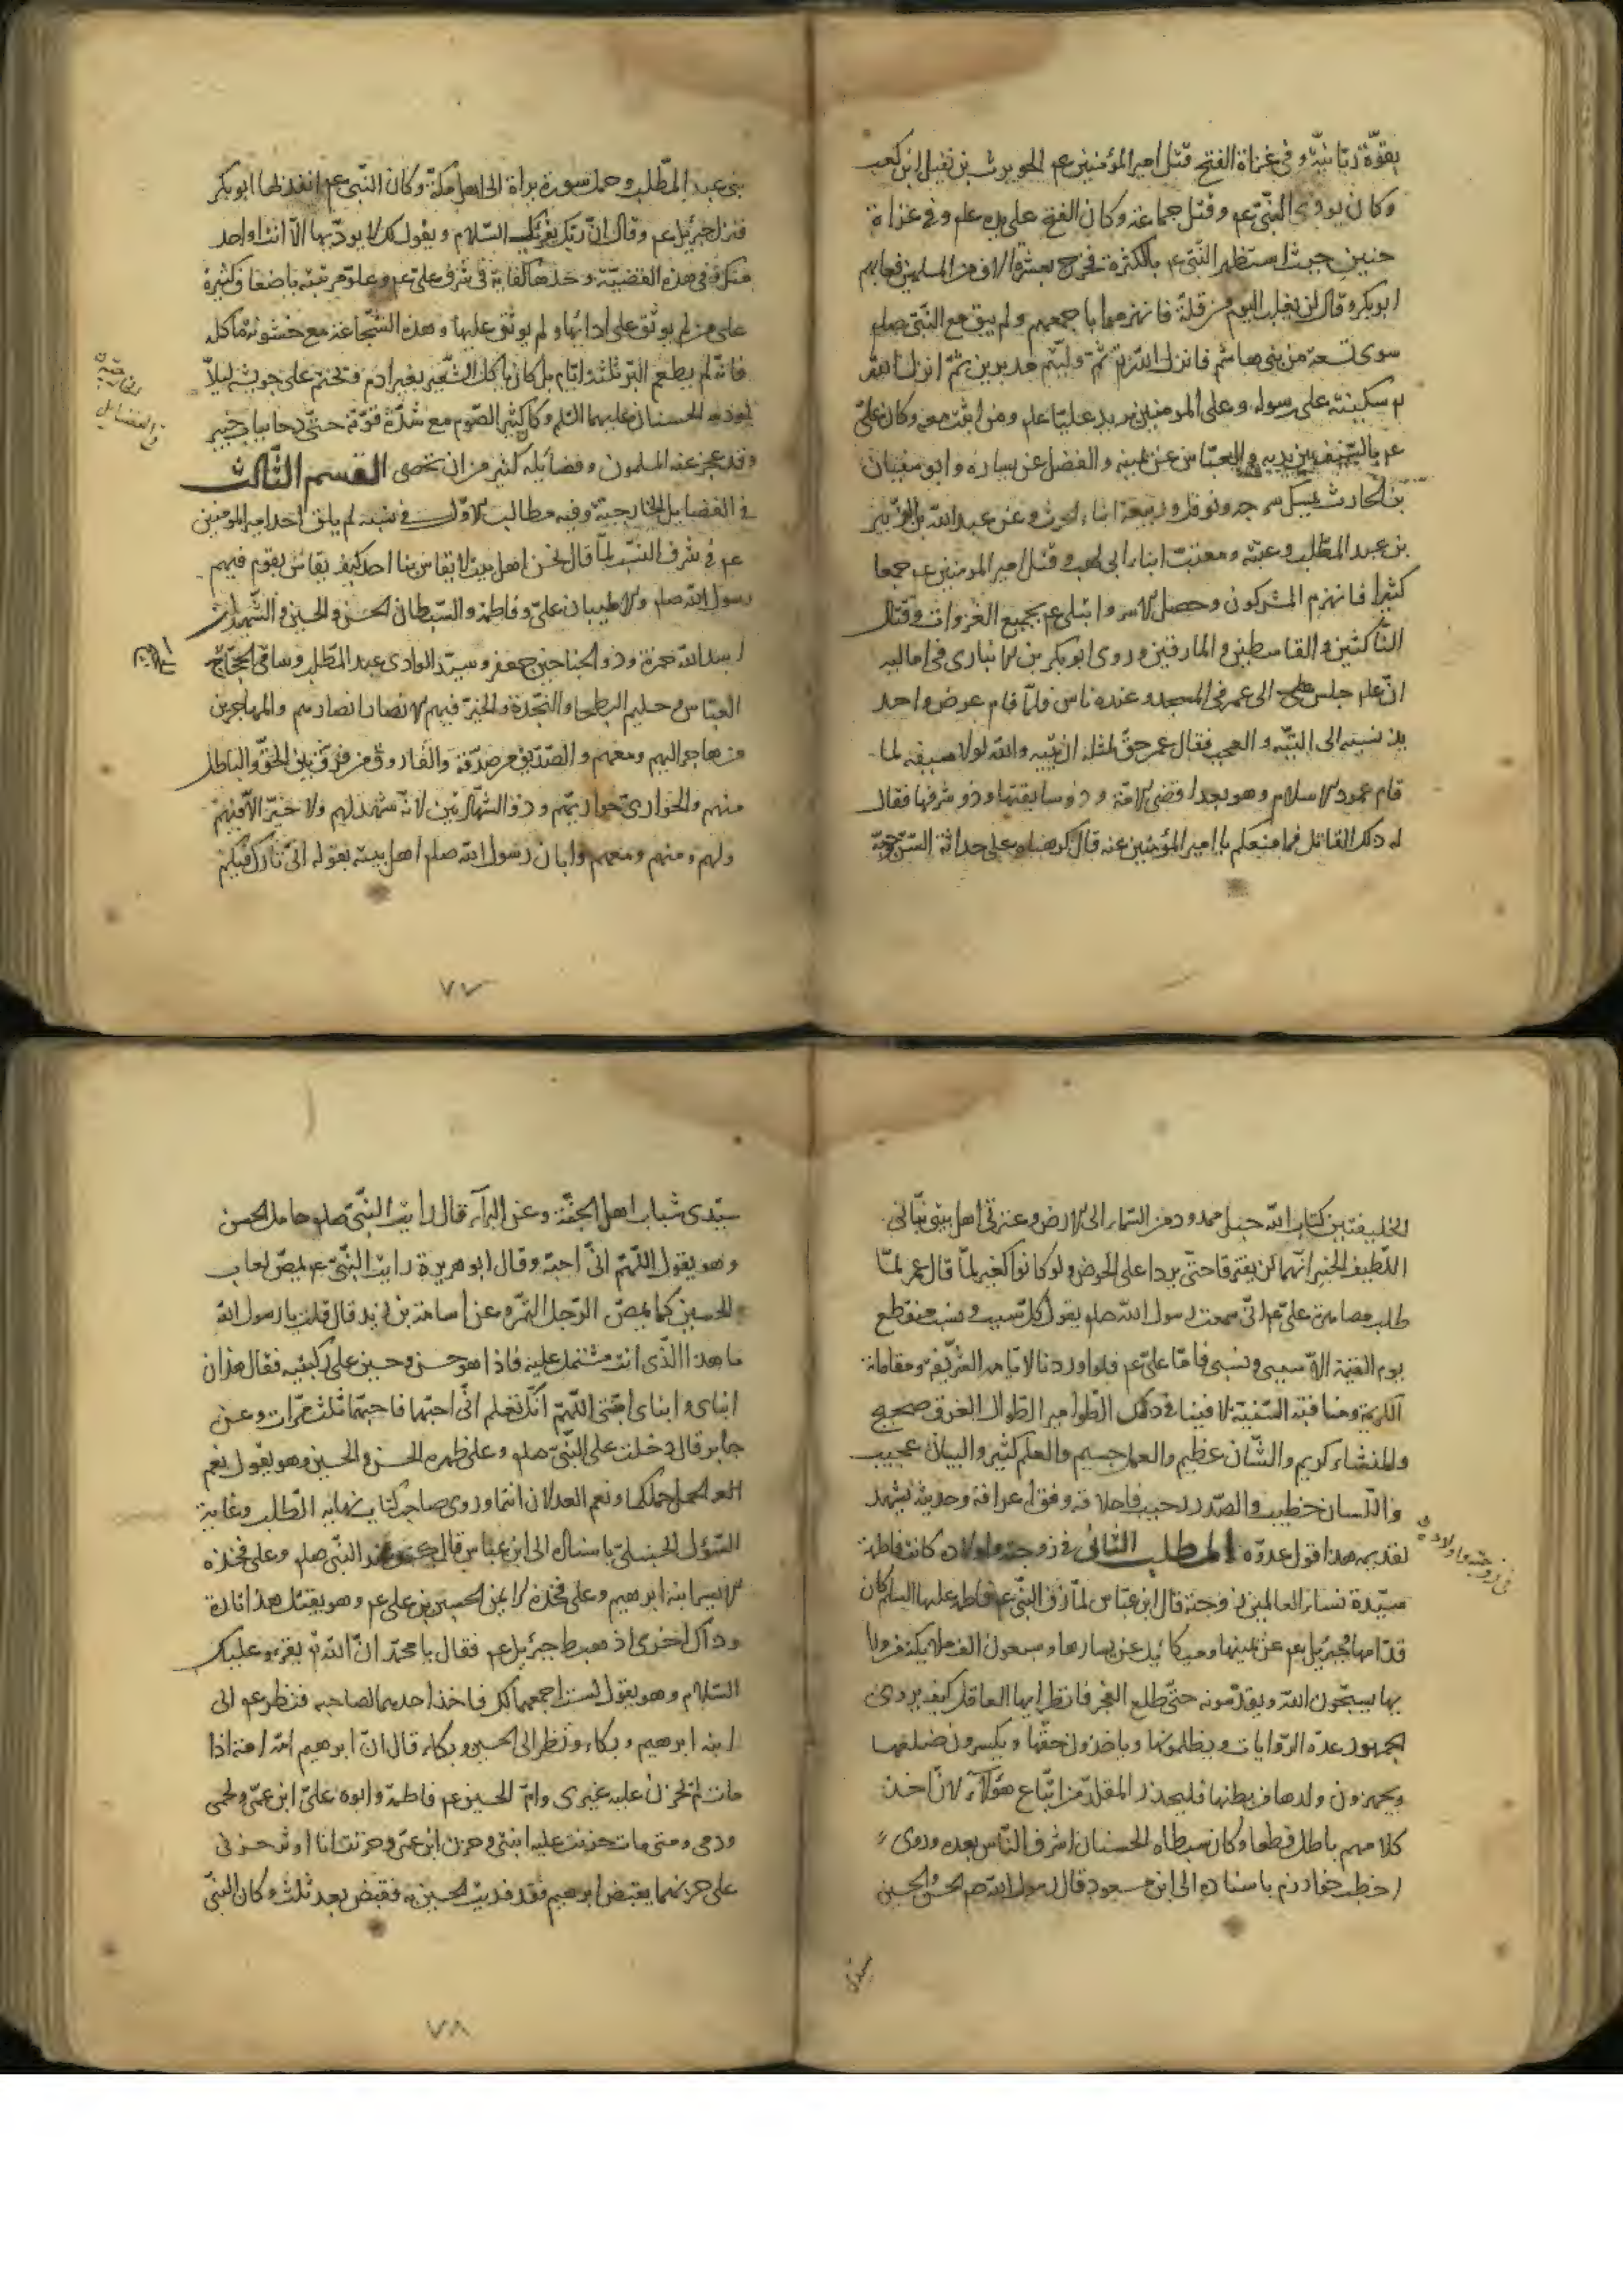 بقوّة ربّانيّة وفى غزاة الفتح قتل امير المؤمنين عم الحويرث بن نفيل ابن كعب
وكان يوذى النبّى عم وقتل جماعة وكان الفتح على يده عم وفى غزاة
حنين حيث استظهر النّبى عم بالكثرة فخرج بعشرة الاف من المسلمين فعابهم
ابوبكر وقال لن يغلب اليوم من قلّة فانهزموا باجمعهم ولم يبق مع النبّى صلم
سوى تسعة من بنى هاشم فانزل اللّه تع ثمّ ولّيتم مدبرين ثمّ انزل اللّه
سكينته على رسوله وعلى المومنين يريد عليّا عم ومن ثبت معه وكان علىّ
عم بالسّيف بين يديه والعبّاس عن يمينه والفضل عن يساره وابو سفيان
بن الحارث يمسك سرجه ونوفل وربيعة ابناء الحرث وعن عبد اللّه بن الزّبير
بن عبد المطّلب وعتبه ومعتب ابناء ابى لهب وقتل امير المومنين عم جمعا
كثيرا فانهزم المشركون وحصل الاسر وابتلى عم بجميع الغزوات وقتال
النّاكثين والقاسطين والمارقين وروى ابوبكر بن الانبارى فى اماليه
انّ عليا جلس الى عمر فى المسجد وعنده ناس فلمّا قام عرض واحد
يذ نسبته الى التّيه و العجب فقال عمر حقّ لمثله ان يتيه واللّه لولا سيفه لما
قام عمود الاسلام وهو بعد اقضى الامّة و ذو سابقتها وذو شرفها فقال
له ذلك القائل فما منعكم يا امير المؤمنين عنه قال كرهناه على حداثة السّنّ وحبّه
بنى عبد المطّلب وحمل سورة براة الى اهل مكّة وكان النبّى عم انفذ بها ابوبكر
فنزل جبرئيل عم وقال انّ ربّك يقرئك السّلام ويقول لك لا يودّيها الاّ انت او احد
منك وفى هذه القضيّة وحدها كفاية فى شرف علىّ عم وعلوّ مرتبته باضعاف كثيرة
على من لم يوثق على ادائها ولم يوثق عليها وهذه الشّجاعة مع خشونة ماكله
فانّه لم يطعم البرّ ثلثة ايّام بل كان ياكل الشّعير بغير ادم ويختم على جويشه ليلاّ
يوذيه الحسنان عليهما السّلم وكان كثير الصّوم مع شدّة قوّته حتّى دحا باب خيبر
وقد عجز عنه المسلمون وفضائله اكثر من ان تحصى القسم الثّالث
فى الفضايل الخارجيّة وفيه مطالب الاوّل فى نسبه لم يلق احد امير المومنين
عم فى شرف النّسب لمّا قال نحن اهل بيت لا يقاس بنا احد كيف يقاس بقوم فيهم
رسول اللّه صلم والاطيبان علىّ وفاطمة والسّبطان الحسن والحسين والشّهيدان
اسد اللّه حمزة وذو الجناحين جعفر وسيّد الوادى عبد المطّلب وساقى الحجّاج
العبّاس وحليم البطحا والنّجدة والخير فيهم والانصار انصارهم والمهاجرين
من هاجر اليهم ومعهم والصّدّيق من صدّقه والفاروق من فرّق بين الحقّ والباطل
منهم والحوارىّ حواريّهم وذو الشّهادتين لانّه شهد لهم ولا خير الاّ فيهم
ولهم ومنهم ومعهم وابان رسول اللّه صلم اهل بيته بقوله انّى تارك فيكم
الخارجيّة
من الفضايل
الخليفتين كتاب اللّه حبل ممدود من السّماء الى الارض وعترتى اهل بيتى نبّانى
اللّطيف الخبير انّهما لن يفترقا حتّى يردا على الحوض ولو كانوا كغيرهم لمّا قال عمر لمّا
طلب مصاهرة علىّ عم انّى سمعت رسول اللّه صلم يقول كلّ سبب ونسب منقطع
يوم القيمة الاّ سببى ونسبى فامّا علىّ عم فلو اوردنا لايّامه الشّريفة ومقاماته
الكريمة ومناقبه السّنيّة لافنينا فى ذلك الطّوامير الطّوال العرق صحيح
والمنشاء كريم والشّان عظيم والعمل جسيم والعلم كثير والبيان عجيب
واللّسان خطيب والصّدر رحيب فاخلاقه وفق اعراقه وحديثه يشهد
لقديمه هذا قول عدوّه المطلب الثّانى فى زوجته واولاده كانت فاطمة
سيّدة نساء العالمين زوجته قال ابن عبّاس لمّا زفّ النّبى عم فاطمة عليها السلم كان
قدّامها وجبرئيل عم عن يمينها وميكائيل عن يسارها وسبعون الف ملك من ورائها
بها يسبّحون اللّه ويقدّسونه حتّى طلع الفجر فانظر ايها العاقل كيف يروى
الجمهور عدّة الرّوايات ويظلمونها وياخذون حقّها ويكسرون ضلعها
ويجهزون ولدها من بطنها فليحذر المقلّد من اتّباع هؤلاء لانّ اخذ
كلامهم باطل قطعا وكان سبطاه الحسنان اشرف النّاس بعده وروى
اخطب خوارزم باسناده الى ابن مسعود قال رسول اللّه صم الحسن والحسين
فى زوجته واولاده
سيّدى
سيّدى شباب اهل الجنّة وعن البرآء قال رايت النّبىّ صلم حامل الحسن
وهو يقول اللّهمّ انّى احبّه وقال ابو هريرة رايت النّبىّ عم يمصّ لعاب
الحسين كما يمصّ الرّجل التّمرة وعن اسامة بن زيد قال قلت يا رسول اللّه
ما هذا الّذى انت مشتمل عليه فاذا هو حسن وحسين على ركبتيه فقال هذان
ابناى وابناى ابنتى اللّهمّ انّك تعلم انّى احبّهما فاحبّهما ثلث مرّات وعن
جابر قال دخلت على النّبىّ صلم وعلى ظهره الحسن والحسين وهو يقول نعم
الجمل جملكما ونعم العدلان انتما وروى صاحب كتاب نهاية الطّلب وغاية
السّؤل الحنبلىّ باسناده الى ابن عباس قال كنت عند النّبى صلم وعلى فخذه
الايسر ابنه ابرهيم وعلى فخذه الايمن الحسين بن على عم وهو يقبّل هذا تارة
وذاك اخرى اذ هبط جبرئيل عم فقال يا محمّد انّ اللّه تع يقرء عليك
السّلام وهو يقول لست اجمعهما لك فاخذ احدهما لصاحبه فنظر عم الى
ابنه ابرهيم وبكاء ونظر الى الحسين وبكاء قال انّ ابرهيم امّه امة اذا
مات لم تحزن عليه غيرى وامّ الحسين عم فاطمة وابوه علىّ ابن عمّى ولحمى
ودمى ومتى مات حزنت عليه ابنتى وحزن ابن عمّى وحزنت انا اوثر حزنى
على حزنهما يقبض ابرهيم فقد فديت الحسين به فقبض بعد ثلث وكان النّبىّ
٧٧
٧٨